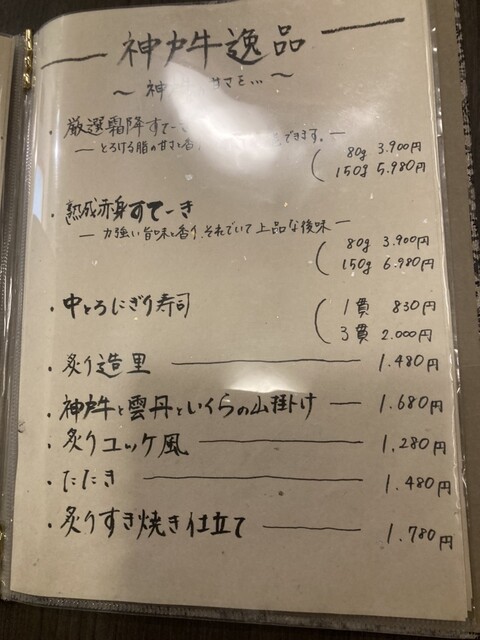 神戸牛逸品
〜 神 甘さを… 〜
・厳選霜降すてーき
— とろける脂の甘さと香 できます。—
80g 3.900円
150g 5.980円
・熟成赤身すてーき
— 力強い旨味と香り、それでいて上品な後味 —
80g 3.900円
150g 6.980円
・中とろにぎり寿司
1貫 830円
3貫 2.000円
・炙り造里 1.480円
・神戸牛と雲丹といくらの山掛け 1.680円
・炙りユッケ風 1.280円
・たたき 1.480円
・炙りすき焼き仕立て 1.780円